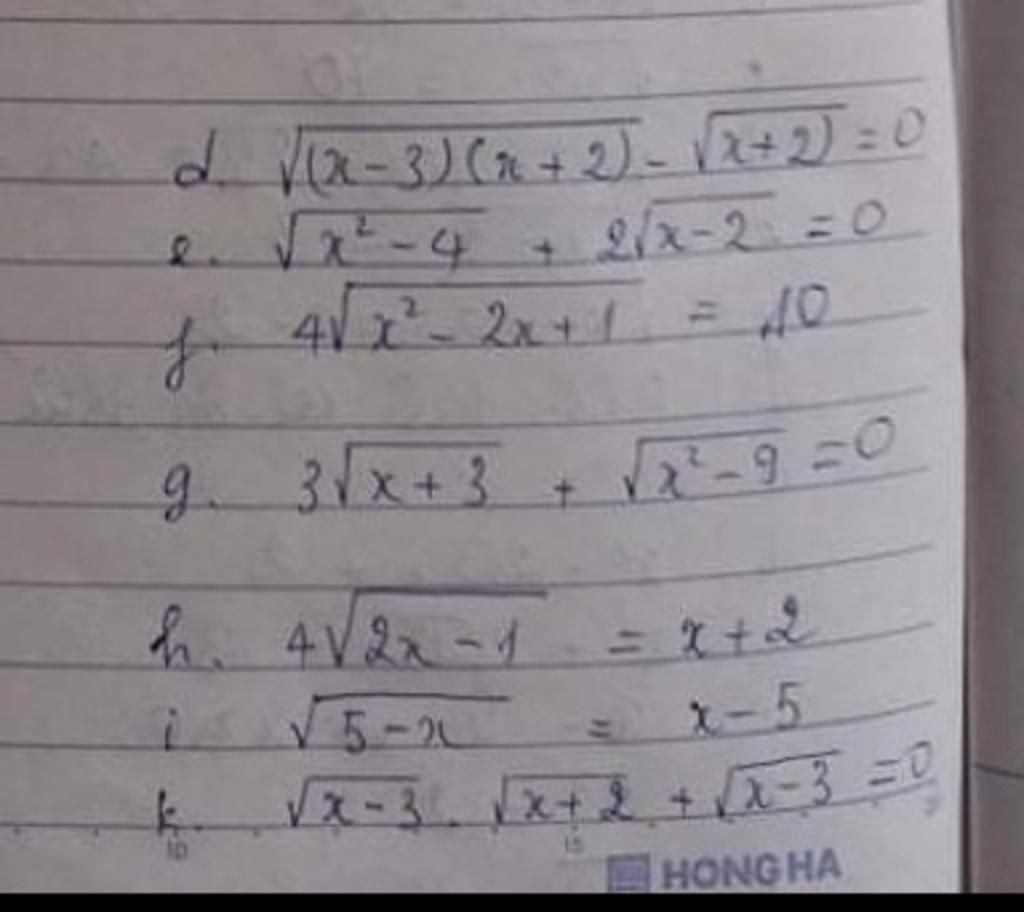 d. √((x-3)(x+2)) - √(x+2) = 0
e. √(x²-4) + 2√(x-2) = 0
f. 4√(x²-2x+1) = 10
g. 3√(x+3) + √(x²-9) = 0
h. 4√(2x-1) = x+2
i √(5-x) = x-5
k. √(x-3) . √(x+2) + √(x-3) = 0
10 15
HONG HA